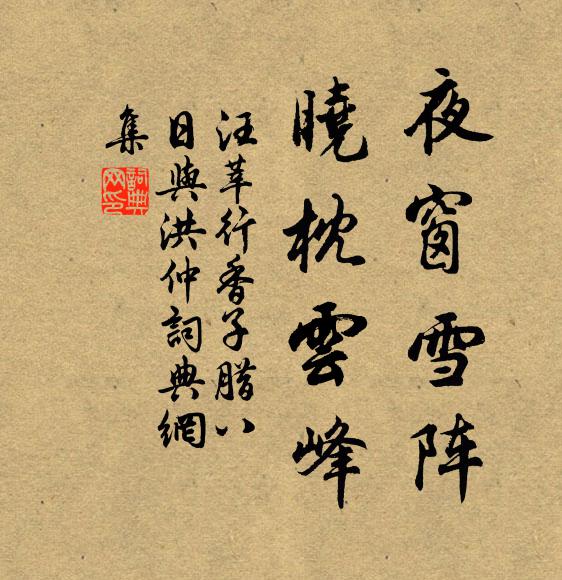 夜窗雪阵
曉枕雲峰
汪莘行香子腊八
日與洪仲詞典網
集
詞典
网印